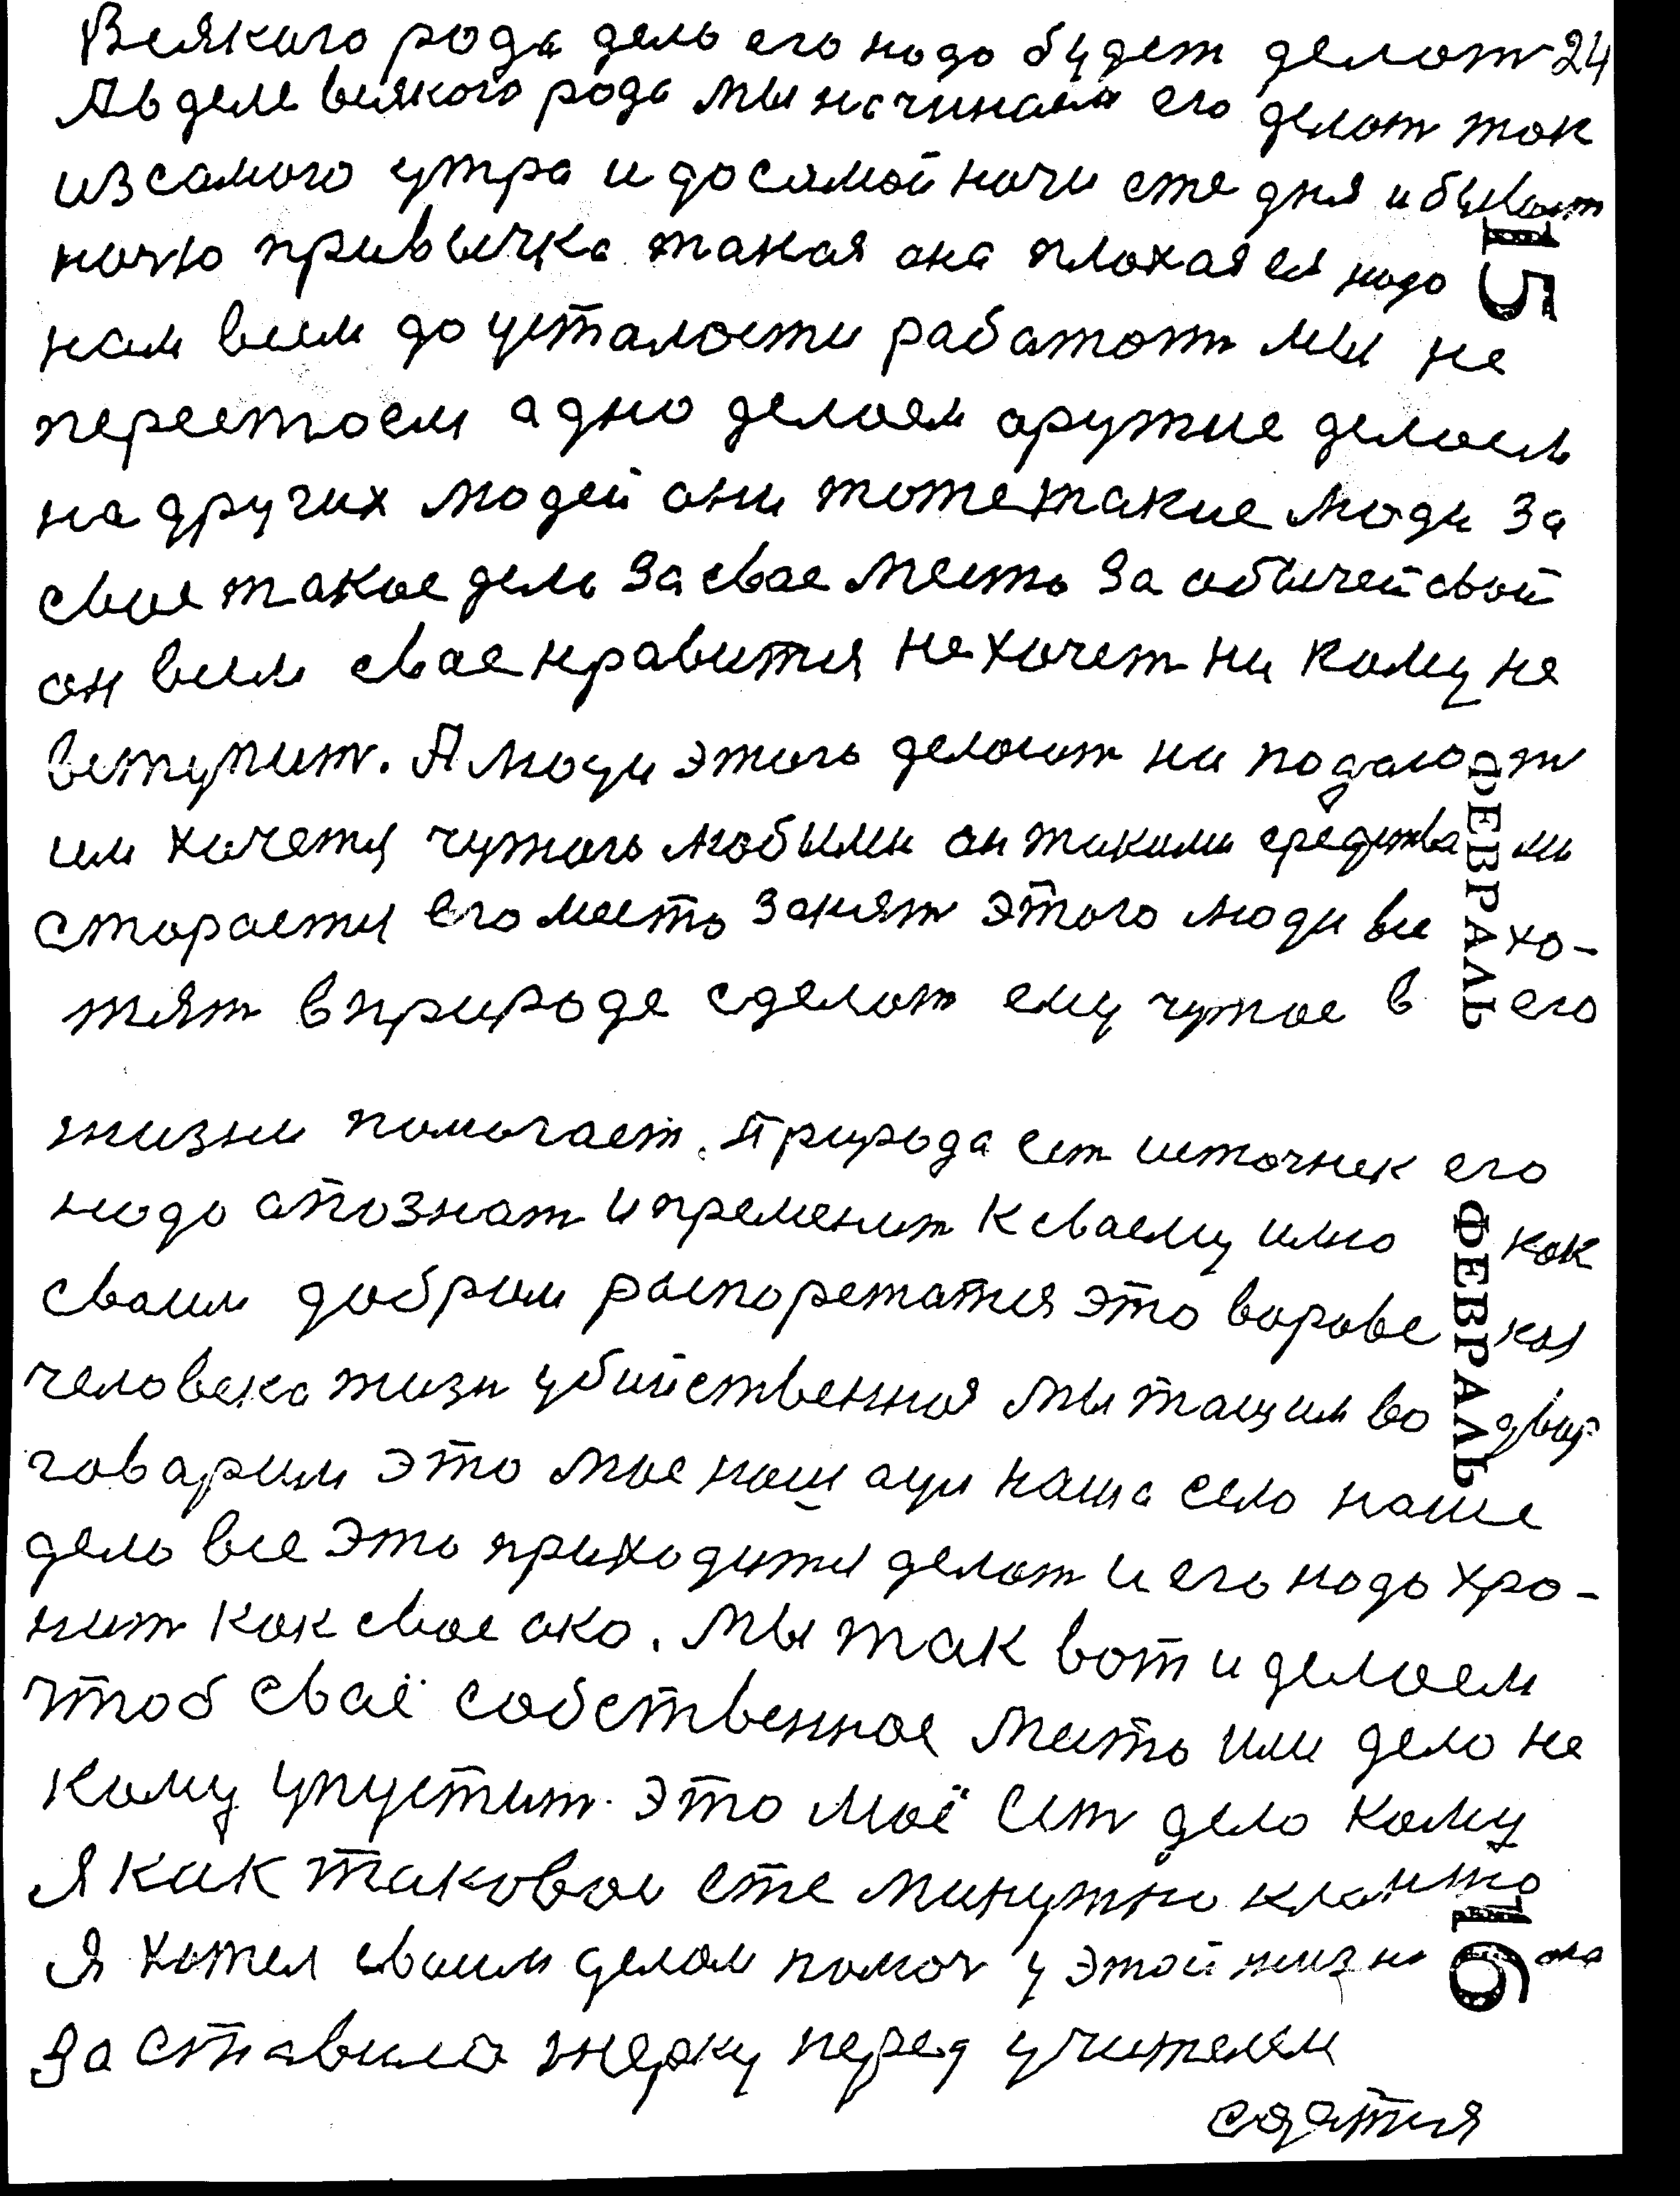 Всякого рода дело его надо будет делат 24
А в деле всякого рода мы начинаем его делат так
из самого утра и до самой ночи еже дня и бывает
ночю привычка такая она плохая ея надо
нам всем до усталости работат мы не
перестоем адно делаем аружие делаем
на других людей они тоже такие люди за
свое такое дело за свае место за обычей свой
он всем свае нравится не хочет ни кому не
вступит. А люди этого делоит ни подают
им хочется чужого любыми он такими средствами
старается его место занят этого люди все хо-
тят в природе сделат ему чужое в его
жизни помогает. Природа ест источник его
надо апознат и пременит к сваему имю как
сваим добром распорежатся это воровская
человека жизн убийственная мы тащим во двор
говарим это мое наш ауи наша село наше
дело все это приходится делат и его надо хро-
нит как свое око. Мы так вот и делаем
чтоб сваё собственное место или дело не
кому упустит. Это моё ест дело кому
Я как таковой еже минутно кланюю
Я хотел сваим делом помоч у этой жизни она
заставила жерку перед учителем
сдатся
15
ФЕВРАЛЬ
ФЕВРАЛЬ
16